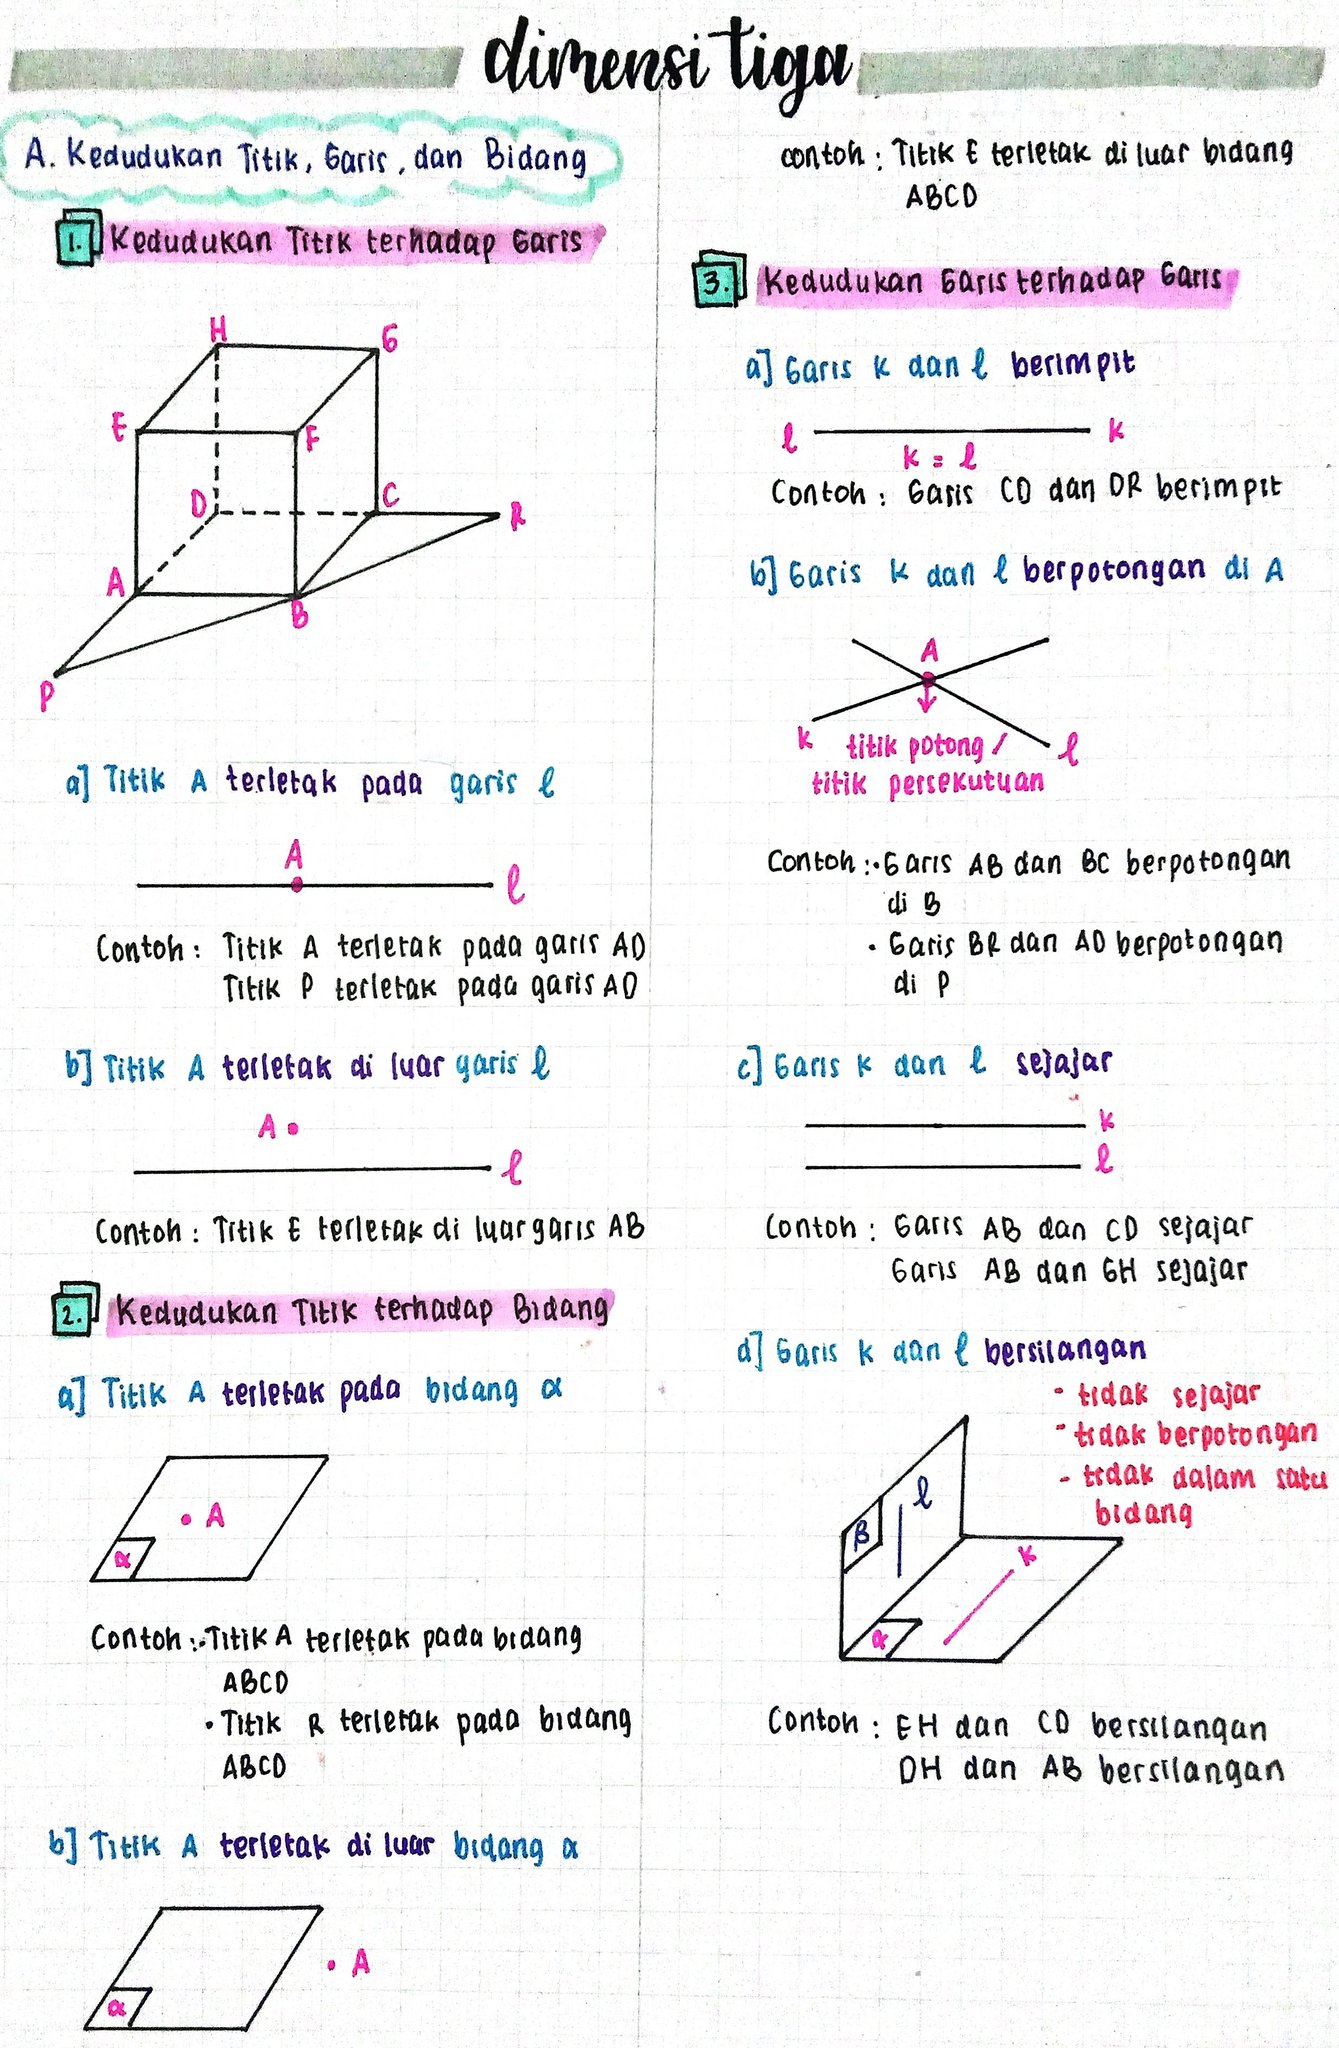 dimensi tiga
A. Kedudukan Titik, Garis, dan Bidang
1. Kedudukan Titik terhadap Garis
H
G
E
F
D
C
R
A
B
P
a] Titik A terletak pada garis l
A
l
Contoh : Titik A terletak pada garis AD
Titik P terletak pada garis AD
b] Titik A terletak di luar garis l
A
l
Contoh : Titik E terletak di luar garis AB
2. Kedudukan Titik terhadap Bidang
a] Titik A terletak pada bidang α
A
α
Contoh : • Titik A terletak pada bidang
ABCD
• Titik R terletak pada bidang
ABCD
b] Titik A terletak di luar bidang α
A
α
contoh : Titik E terletak di luar bidang
ABCD
3. Kedudukan Garis terhadap Garis
a] Garis k dan l berimpit
l
k
k = l
Contoh : Garis CD dan DR berimpit
b] Garis k dan l berpotongan di A
A
k
l
titik potong /
titik persekutuan
Contoh : • Garis AB dan BC berpotongan
di B
• Garis BR dan AD berpotongan
di P
c] Garis k dan l sejajar
k
l
Contoh : Garis AB dan CD sejajar
Garis AB dan GH sejajar
d] Garis k dan l bersilangan
- tidak sejajar
- tidak berpotongan
- tidak dalam satu
bidang
l
β
k
α
Contoh : EH dan CD bersilangan
DH dan AB bersilangan